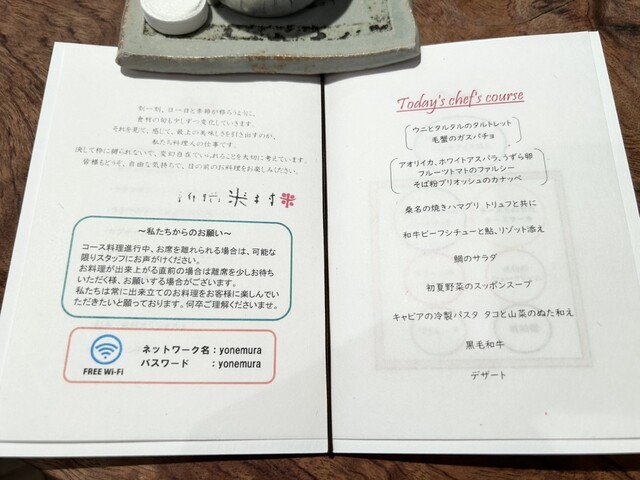 刻一刻、日一日と季節が移ろうように、
食材の旬も少しずつ変化していきます。
それを見て、感じて、最上の美味しさを引き出すのが、
私たち料理人の仕事です。
決して枠に縛られないで、変幻自在でいられることを大切に考えています。
皆様もどうぞ、自由な気持ちで、目の前のお料理をお楽しみください。
米村
～私たちからのお願い～
コース料理進行中、お席を離れられる場合は、可能な
限りスタッフにお声がけください。
お料理が出来上がる直前の場合は離席を少しお待ち
いただく様、お願いする場合がございます。
私たちは常に出来立てのお料理をお客様に楽しんでい
ただきたいと願っております。何卒ご理解くださいませ。
FREE Wi-Fi
ネットワーク名：yonemura
パスワード　：yonemura
Today's chef's course
ウニとタルタルのタルトレット
毛蟹のガスパチョ
アオリイカ、ホワイトアスパラ、うずら卵
フルーツトマトのファルシー
そば粉ブリオッシュのカナッペ
桑名の焼きハマグリ トリュフと共に
和牛ビーフシチューと鮑、リゾット添え
鯛のサラダ
初夏野菜のスッポンスープ
キャビアの冷製パスタ タコと山菜のぬた和え
黒毛和牛
デザート